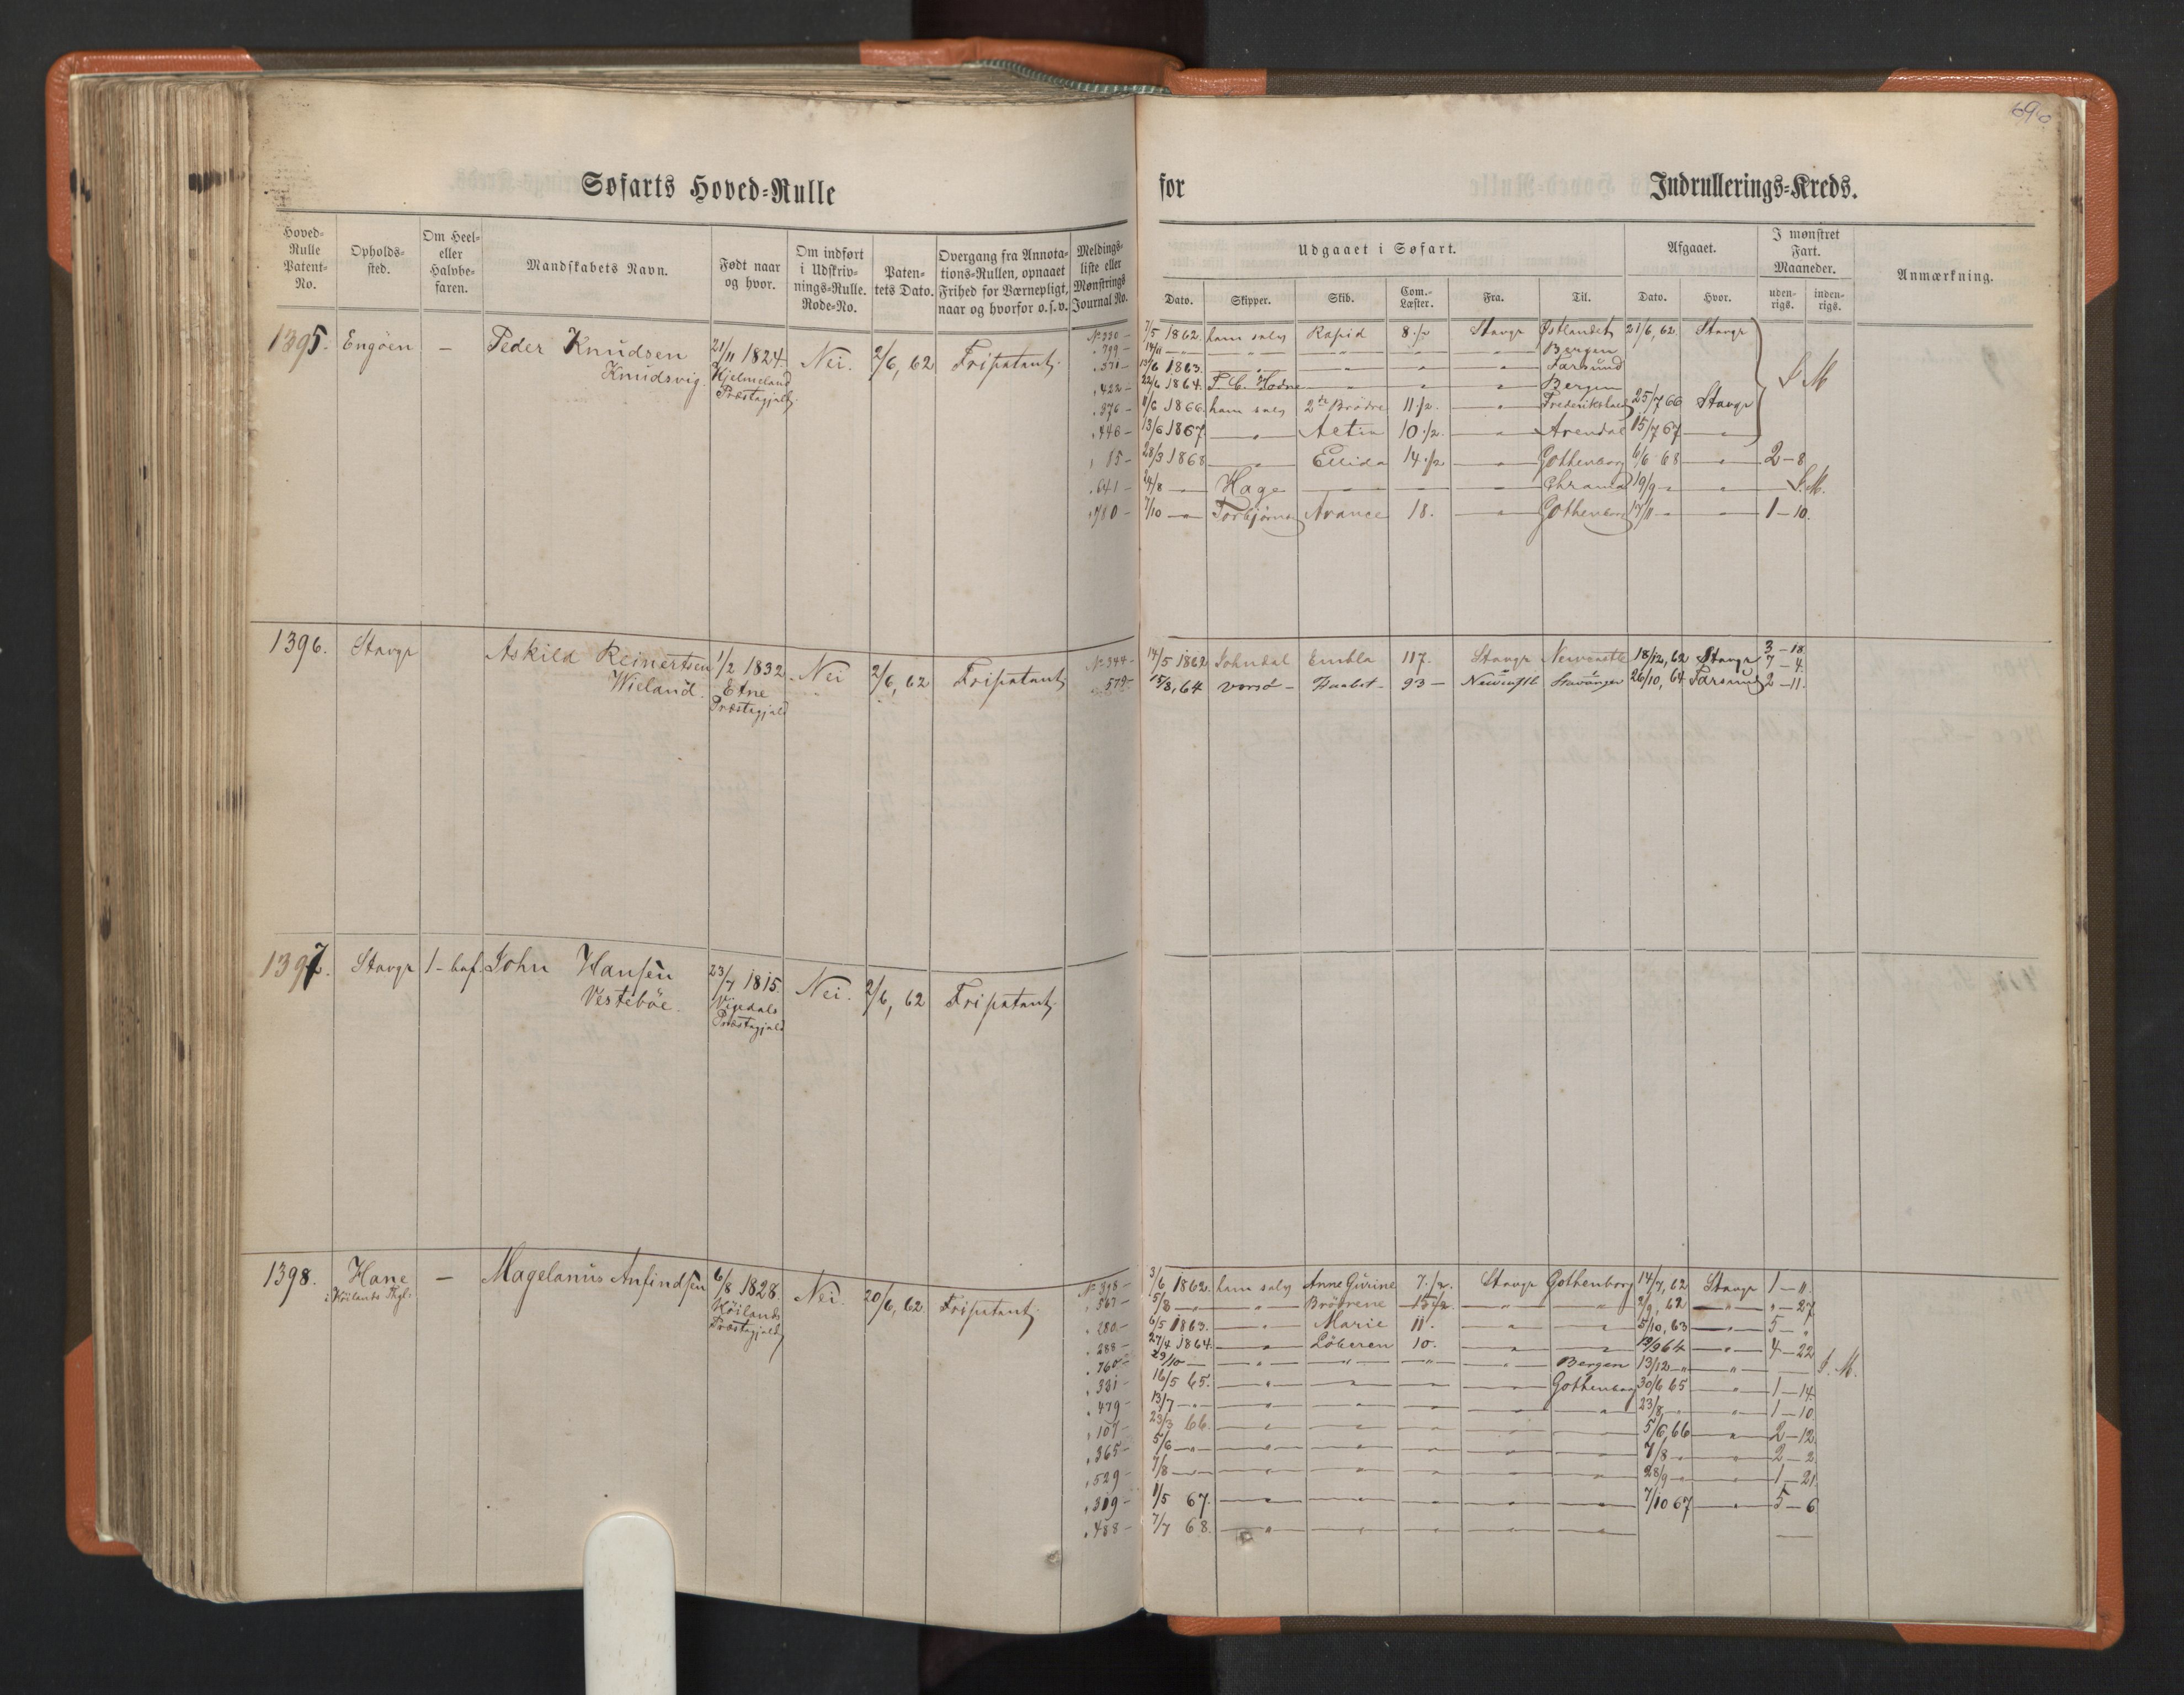 690
Søfarts Hoved=Rulle for Indrullerings=Kreds.
Hoved=Rulle Patent=No.
Opholds=sted.
Om Heel= eller Halvbe=faren.
Mandskabets Navn.
Født naar og hvor.
Om indført i Udskriv=nings=Rulle. Rode=No.
Paten=tets Dato.
Overgang fra Annota=tions=Rullen, opnaaet Frihed for Værnepligt, naar og hvorfor o.s.v.
Meldings=liste eller Mønstrings Journal No.
Udgaaet i Søfart.
Dato. Skipper. Skib. Com.=Læster. Fra. Til.
Afgaaet.
Dato. Hvor.
I mønstret Fart. Maaneder.
uden=rigs. inden=rigs.
Anmærkning.
1395. Engöen — Peder Knudsen 21/11 1824. Nei. 2/6, 62 Fripatent.
Knudsvig. Hjelmeland
Præstegjeld
No 330 — 7/5 1862. ham selv Rapid 8 1/2 Stavgr Østlandet 21/6, 62 Stavgr
" 799 — 14/11 — " — " — " — " — " — Bergen
" 371 — 13/6 1863. — " — " — " — " — Farsund
" 422 — 22/6 1864. T. C. Hodne — " — " — " — Bergen
" 376 — 11/6 1866. ham selv 2de Brødre 11 1/2. — " — Frederikshald 25/7 66 Stavgr
" 446 — 13/6 1867 — " — Actin 10 1/2. — " — Arendal 15/7 67 — " —
S M
" 15 — 28/3 1868 — " — Ellida 14 1/2 — " — Gothenborg 6/6 68 — " — 2 — 8
" 641 — 24/8 — Hage — " — " — " — Chrania 19/9 — " — " — S. M.
" 780 — 7/10 — " — Torbjørnsen Avance 18. — " — Gothenborg 17/11 — " — 1 — 10.
1396. Stavgr Askild Reinertsen 1/2 1832 Nei 2/6, 62 Fripatent
Wieland. Etne
Præstegjeld
No 344 — 14/5 1862 Johndal Embla 117. Stavgr Newcastle 18/12, 62 Stavgr 3 — 18
7 — 4.
579 — 15/8, 64 Vorsö — Haabet — 93 — Newcastle Stavanger 26/10, 64 Farsund 2 — 11.
1397. Stavgr 1 — haf. John Hansen 23/7 1815. Nei. 2/6, 62 Fripatent.
Vestebøe. Vigedals
Præstegjeld
1398. Hane — Magelanus Anfindsen 6/8 1828. Nei. 20/6, 62 Fripatent.
i Höilands Pgl: Höilands
Præstegjeld
No 398 — 3/6 1862. ham selv Anne Gurine 7 1/2. Stavgr Gothenborg 14/7, 62 Stavgr 1 — 11.
" 567 — 5/8 — " — " — Brødrene — 15 1/2 — " — " — 2/9, 62 — " — " — 27
" 280 — 6/5 1863. — " — Marie 11. — " — " — 5/10, 63 — " — 5 — "
" 288 — 27/4 1864. — " — Löberen 10. — " — " — 19/9 64 — " — 4 — 22
" 760 — 29/10 — — " — " — " — " — Bergen 13/12 — " — " — S. M.
" 331 — 16/5 65. — " — " — " — " — Gothenborg 30/6 65 — " — 1 — 14.
" 479 — 13/7 — " — " — " — " — " — " — 23/8 — " — " — 1 — 10
" 107 — 23/3 66. — " — " — " — " — " — 5/6, 66 — " — 2 — 12.
" 365 — 5/6 — " — " — " — " — " — " — 7/8 — " — " — 2 — 2.
" 529 — 7/8 — " — " — " — " — " — " — 28/9 — " — " — 1 — 21.
" 319 — 1/5 67. — " — " — " — " — " — 7/10 67 — " — 5 — 6
" 488 — 7/7 68. — " — " — " — " — " —